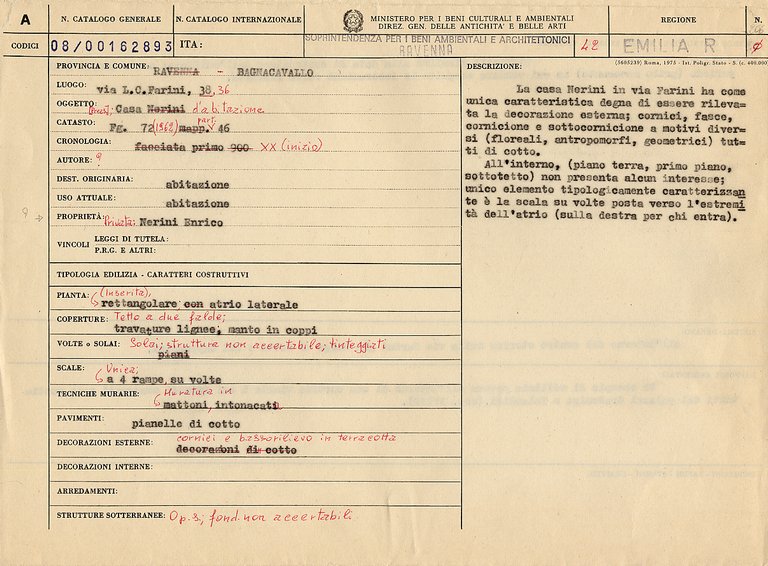 A
N. CATALOGO GENERALE
N. CATALOGO INTERNAZIONALE
MINISTERO PER I BENI CULTURALI E AMBIENTALI
DIREZ. GEN. DELLE ANTICHITA' E BELLE ARTI
REGIONE
N.
CODICI
08/00162893
ITA:
SOPRINTENDENZA PER I BENI AMBIENTALI E ARCHITETTONICI
RAVENNA
42
EMILIA R
PROVINCIA E COMUNE: RAVENNA - BAGNACAVALLO
LUOGO: via L.C.Farini, 38,36
OGGETTO: Casa Nerini d'abitazione
CATASTO: Fg. 72 (1962) mapp. part. 46
CRONOLOGIA: facciata primo 900 XX (inizio)
AUTORE: ?
DEST. ORIGINARIA: abitazione
USO ATTUALE: abitazione
PROPRIETÀ: Privata: Nerini Enrico
VINCOLI
LEGGI DI TUTELA:
P.R.G. E ALTRI:
TIPOLOGIA EDILIZIA - CARATTERI COSTRUTTIVI
PIANTA: (Inserita),
rettangolare con atrio laterale
COPERTURE: Tetto a due falde;
travature lignee, manto in coppi
VOLTE o SOLAI: Solai; struttura non accertabile; tinteggiati
piani
SCALE: Unica;
a 4 rampe su volte
TECNICHE MURARIE: Muratura in
mattoni, intonacata
PAVIMENTI: pianelle di cotto
DECORAZIONI ESTERNE: cornici e bassorilievo in terracotta
decorazioni di cotto
DECORAZIONI INTERNE:
ARREDAMENTI:
STRUTTURE SOTTERRANEE: Op. s; fond. non accertabili
(5605239) Roma, 1975 - Ist. Poligr. Stato - S. (c. 400.000)
DESCRIZIONE:
La casa Nerini in via Farini ha come
unica caratteristica degna di essere rileva=
ta la decorazione esterna; cornici, fasce,
cornicione e sottocornicione a motivi diver=
si (floreali, antropomorfi, geometrici) tut=
ti di cotto.
All'interno, (piano terra, primo piano,
sottotetto) non presenta alcun interesse;
unico elemento tipologicamente caratterizzan
te è la scala su volte posta verso l'estremi
tà dell'atrio (sulla destra per chi entra).